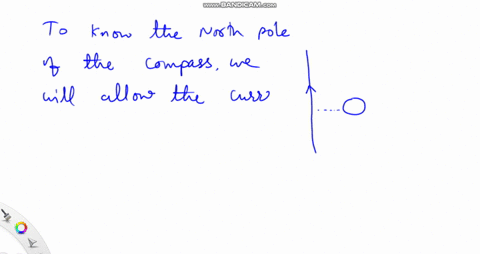 www.BANDICAM.com
To know the North pole
of the compass, we
will allow the curr